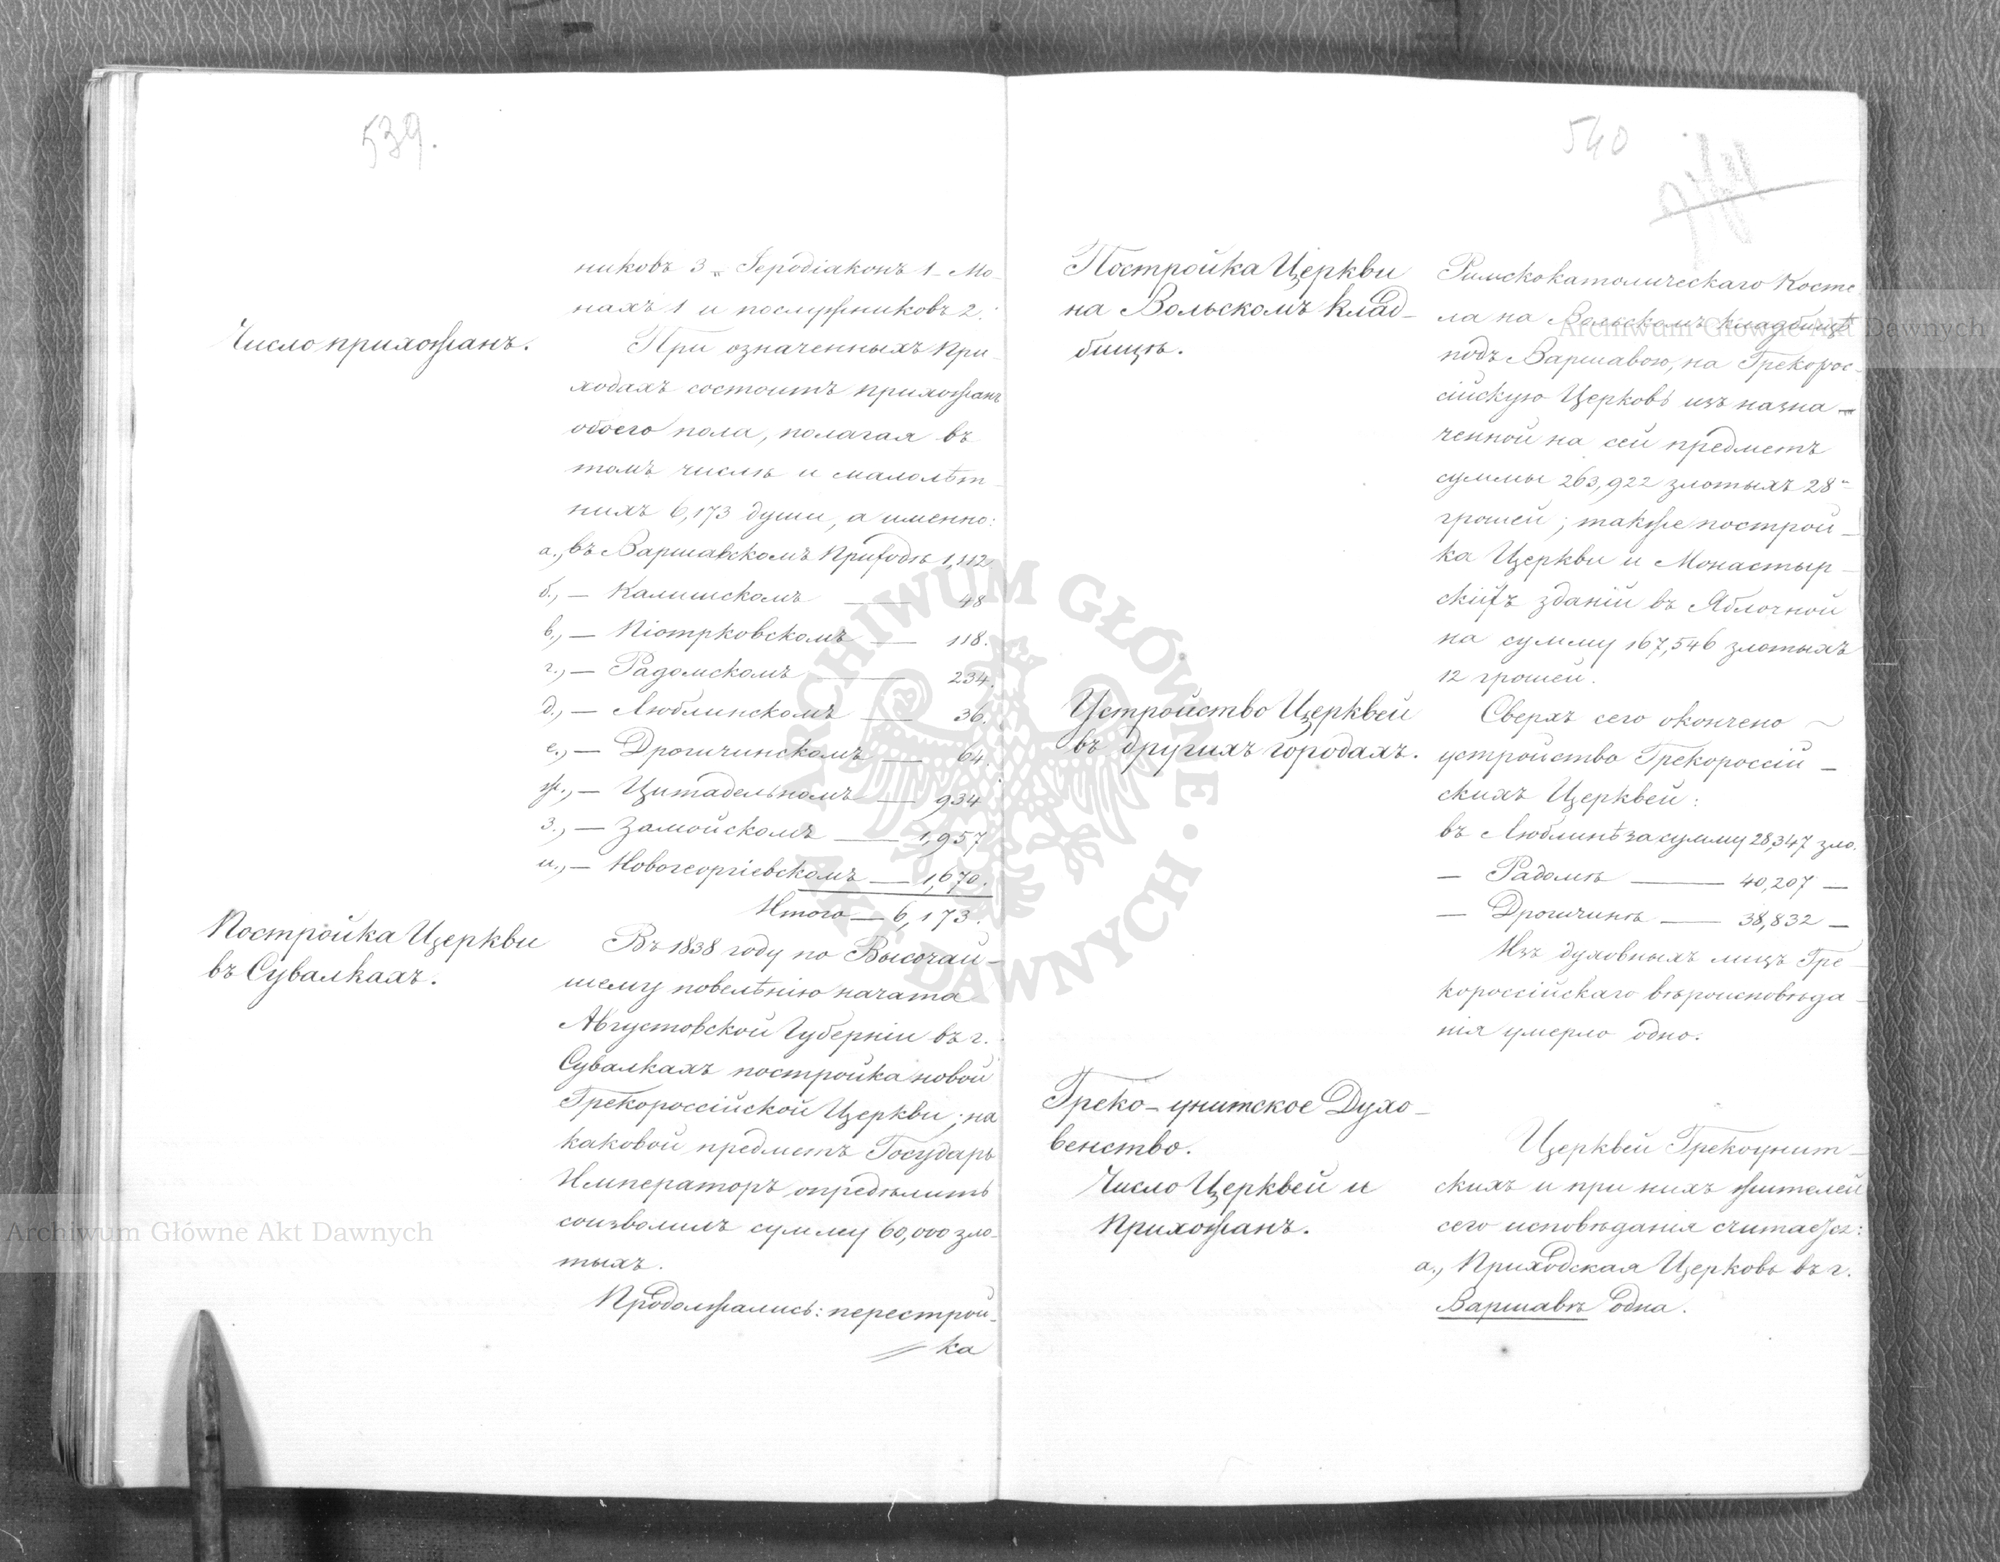 539.
никовъ 3 - Іеродіаконъ 1 - Мо-
нахъ 1 и послужниковъ 2.
Число прихожанъ.
При означенныхъ При-
ходахъ состоитъ прихожанъ
обоего пола, полагая въ
томъ числѣ и малолѣт-
нихъ 6,173 души, а именно:
а., въ Варшавскомъ Приходѣ 1,112
б., — Калишскомъ — 48
в., — Піотрковскомъ — 118.
г., — Радомскомъ — 234.
д., — Люблинскомъ — 36.
е., — Дрогичинскомъ — 64.
ж., — Цитадельномъ — 934
з., — Замойскомъ — 1,957
и., — Новогеоргіевскомъ — 1,670.
Итого — 6,173.
Постройка Церкви
въ Сувалкахъ.
Въ 1838 году по Высочай-
шему повелѣнію начата
Августовской Губерніи въ г.
Сувалкахъ постройка новой
Грекороссійской Церкви; на
каковой предметъ Государь
Императоръ опредѣлить
соизволилъ сумму 60,000 зло-
тыхъ.
Продолжались: перестрой-
ка
540
Постройка Церкви
на Вольскомъ Клад-
бищѣ.
Римскокатолическаго Косте-
ла на Вольскомъ Кладбищѣ
подъ Варшавою, на Грекорос-
сійскую Церковь изъ назна-
ченной на сей предметъ
суммы 263,922 злотыхъ 28
грошей; также построй-
ка Церкви и Монастыр-
скихъ зданій въ Яблочной
на сумму 167,546 злотыхъ
12 грошей.
Устройство Церквей
въ другихъ городахъ.
Сверхъ сего окончено
устройство Грекороссій-
скихъ Церквей:
въ Люблинѣ за сумму 28,347 зло.
— Радомѣ — 40,207 —
— Дрогичинѣ — 38,832 —
Изъ духовныхъ лицъ Гре-
короссійскаго вѣроисповѣда-
нія умерло одно.
Греко-унитское Духо-
венство.
Число Церквей и
Прихожанъ.
Церквей Грекоунит-
скихъ и при нихъ жителей
сего исповѣданія считается:
а., Приходская Церковь въ г.
Варшавѣ одна.
Archiwum Główne Akt Dawnych
Archiwum Główne Akt Dawnych
ARCHIWUM GŁÓWNE AKT DAWNYCH